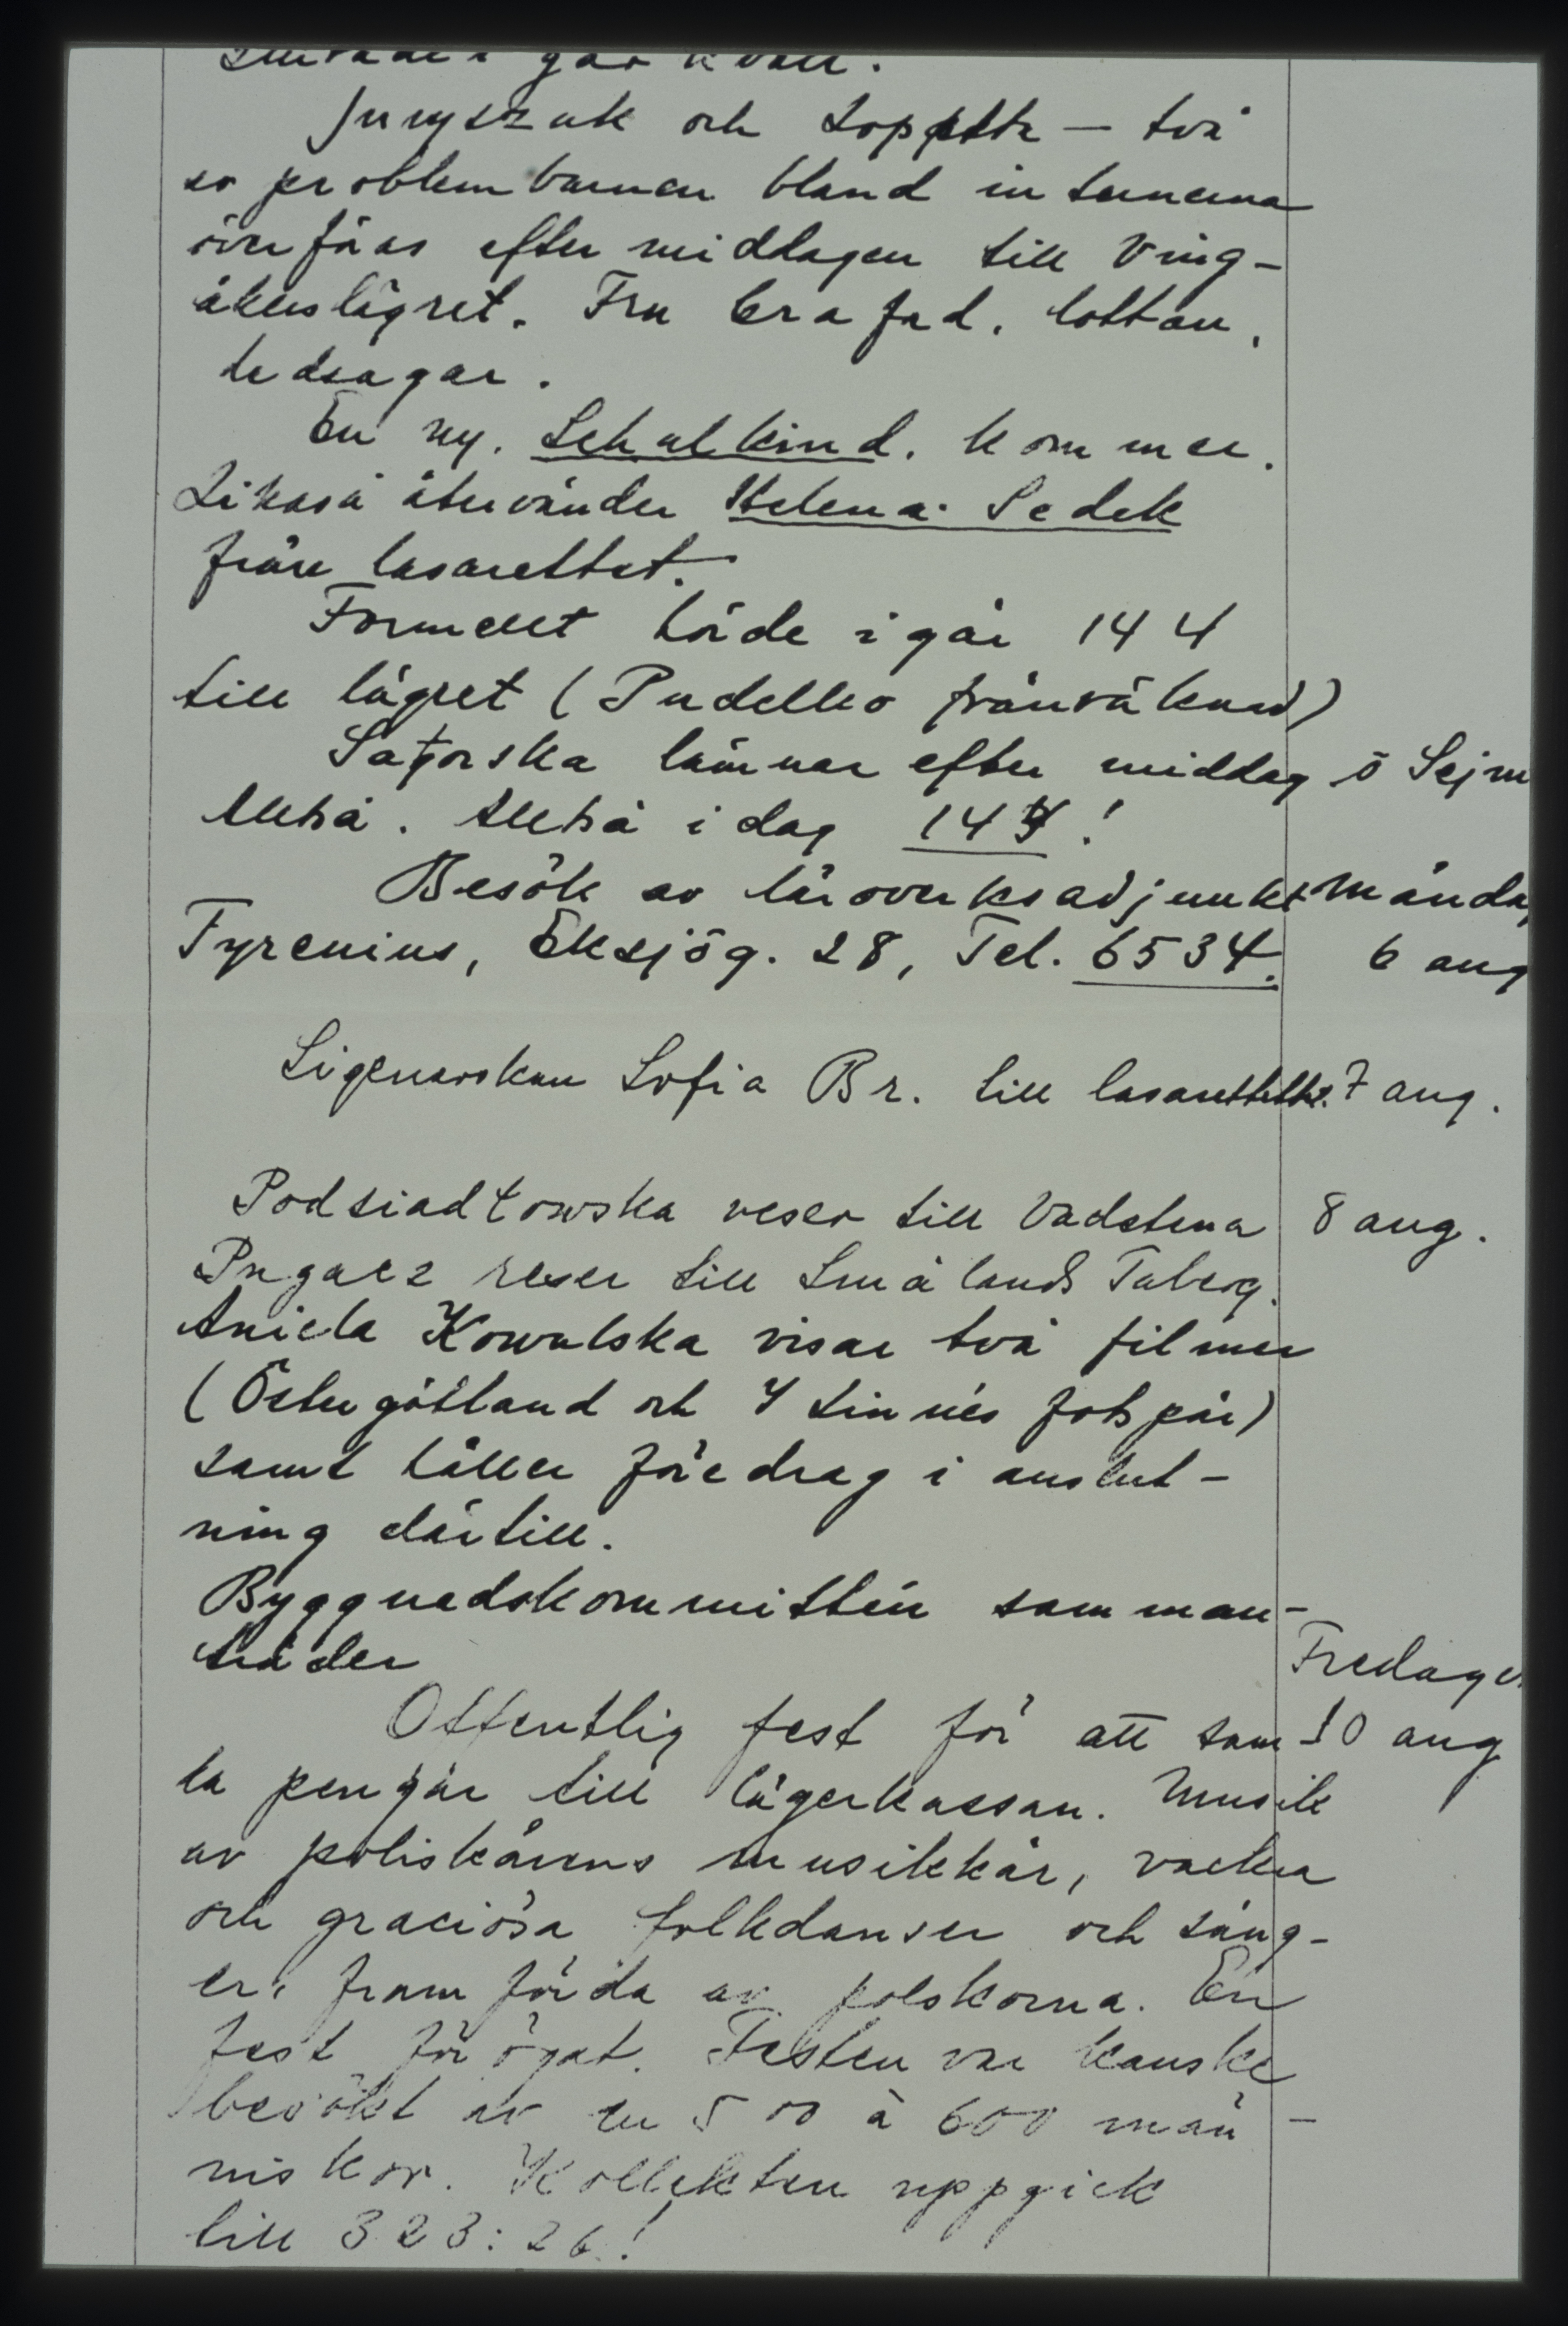 i går kväll.
Juryszuk och – två
av problembarnen bland internerna
överföras efter middagen till Ving-
åkerslägret. Fru lottan,
ledsagar.
En ny, Schulkind, kommer.
Likaså återvänder Helena Sedek
från lasarettet.
Formellt hörde igår 144
till lägret (Pudelko frånräknad)
Satorska lämnar efter middag ö Sejm
Alltså. Alltså idag 144!
Besök av läroverksadjunkt Månda
Fyrenius, Eksjög. 28, Tel. 6534. 6 aug
Sigenarskan Sofia Br. till lasarettet. 7 aug.
Podsiadłowska reser till Vadstena 8 aug.
Pugacz reser till Smålands Taberg.
Aniela Kowalska visar två filmer
(Östergötland och I Linnés fotspår)
samt håller föredrag i anslut-
ning därtill.
Byggnadskommittén samman-
träder
Fredagen
Offentlig fest för att sam- 10 aug
la pengar till lägerkassan. Musik
av poliskårens musikkår, vackra
och graciösa folkdanser och sång-
er, framförda av polskorna. En
fest för ögat. Festen var kanske
besökt av en 500 à 600 män-
niskor. Kollekten uppgick
till 323:26!